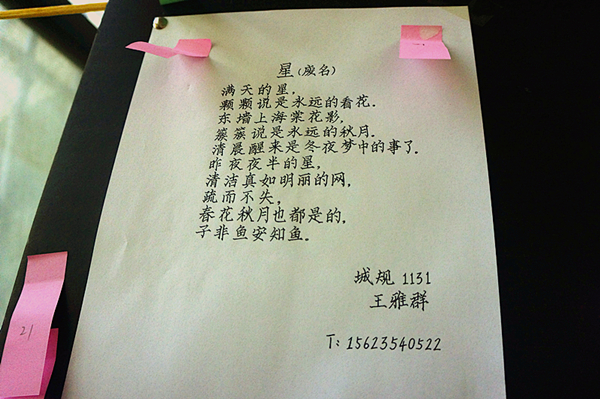 星(废名)
满天的星,
颗颗说是永远的看花.
东墙上海棠花影,
簇簇说是永远的秋月.
清晨醒来是冬夜梦中的事了.
昨夜夜半的星,
清洁真如明丽的网,
疏而不失,
春花秋月也都是的,
子非鱼安知鱼.
城规 1131
王雅群
T: 15623540522
21